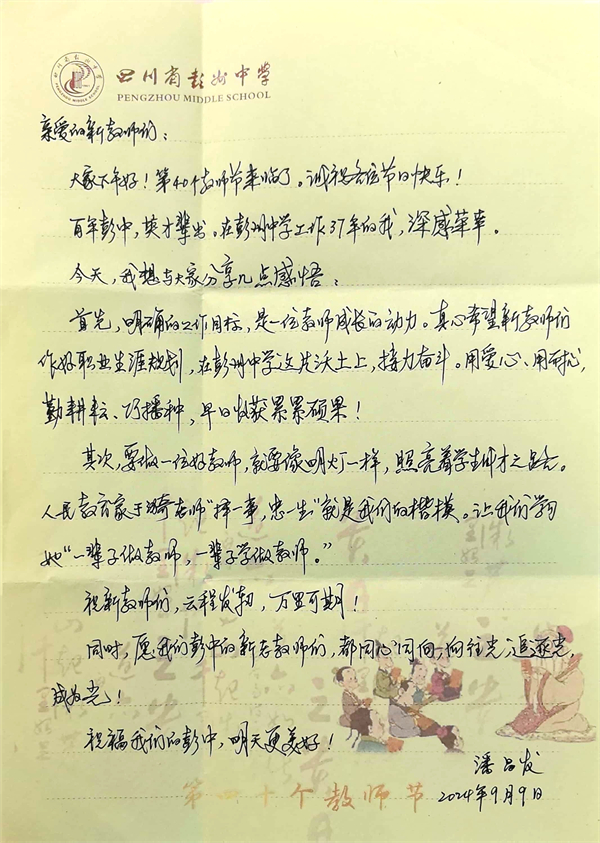 四川省彭州中学
PENGZHOU MIDDLE SCHOOL
亲爱的新教师们：
大家下午好！第40个教师节来临了。诚祝各位节日快乐！
百年彭中，英才辈出。在彭州中学工作37年的我，深感荣幸。
今天，我想与大家分享几点感悟：
首先，明确的工作目标，是一位教师成长的动力。真心希望新教师们
作好职业生涯规划，在彭州中学这片沃土上，接力奋斗。用爱心、用耐心，
勤耕耘、巧播种，早日收获累累硕果！
其次，要做一位好教师，就要像明灯一样，照亮着学生成才之路。
人民教育家于漪老师"择一事，忠一生"就是我们的楷模。让我们学习
她"一辈子做教师，一辈子学做教师。"
祝新教师们，云程发轫，万里可期！
同时，愿我们彭中的新老教师们，都同心同向，向往光，追逐光，
成为光！
祝福我们的彭中，明天更美好！
潘昌发
2024年9月9日
第四十个教师节